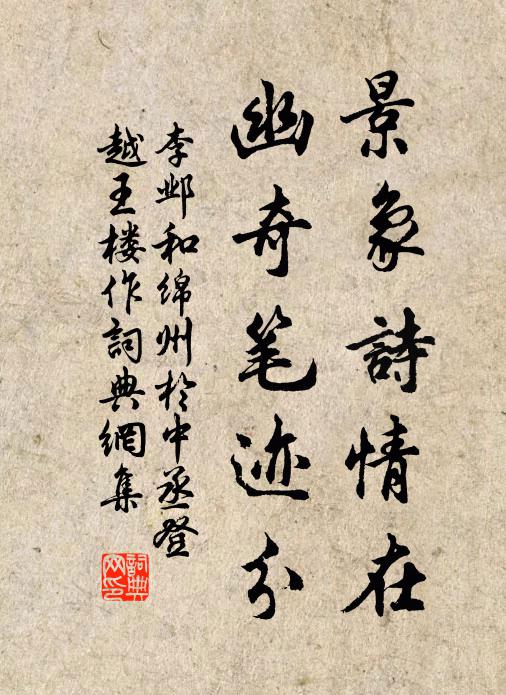 景象詩情在
幽奇笔迹分
李邺和绵州於中丞登
越王楼作詞典網集
詞典
网印